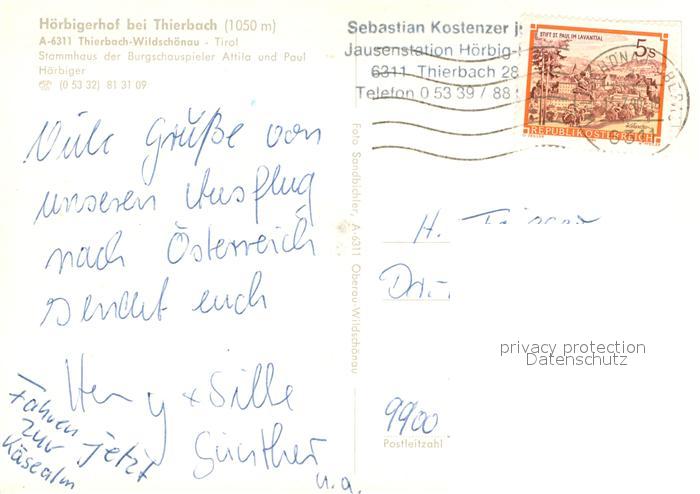 Hörbigerhof bei Thierbach (1050 m)
A-6311 Thierbach-Wildschönau - Tirol
Stammhaus der Burgschauspieler Attila und Paul
Hörbiger
☎ (0 53 32) 81 31 09
Sebastian Kostenzer
Jausenstation Hörbig-
6311 Thierbach 28
Telefon 0 53 39 / 88
STIFT ST. PAUL IM LAVANTTAL
5 S
REPUBLIK ÖSTERREICH
Viele Grüße von
unserem Ausflug
nach Österreich
sendet euch
Henry + Sille
Günther
u.a.
Fahren
zur jetzt
Käsealm
Foto Sandbichler, A-6311 Oberau-Wildschönau
H.
9900
Postleitzahl
privacy protection
Datenschutz